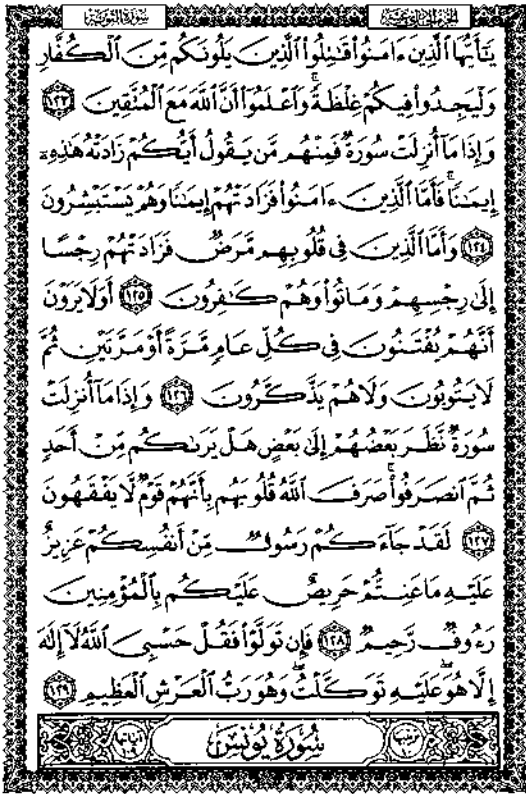 سورة التوبة
الجزء الحادي عشر
يَٰٓأَيُّهَا ٱلَّذِينَ ءَامَنُوا۟ قَٰتِلُوا۟ ٱلَّذِينَ يَلُونَكُم مِّنَ ٱلْكُفَّارِ
وَلْيَجِدُوا۟ فِيكُمْ غِلْظَةً ۚ وَٱعْلَمُوٓا۟ أَنَّ ٱللَّهَ مَعَ ٱلْمُتَّقِينَ ١٢٣
وَإِذَا مَآ أُنزِلَتْ سُورَةٌ فَمِنْهُم مَّن يَقُولُ أَيُّكُمْ زَادَتْهُ هَٰذِهِۦٓ
إِيمَٰنًا ۚ فَأَمَّا ٱلَّذِينَ ءَامَنُوا۟ فَزَادَتْهُمْ إِيمَٰنًا وَهُمْ يَسْتَبْشِرُونَ
١٢٤ وَأَمَّا ٱلَّذِينَ فِى قُلُوبِهِم مَّرَضٌ فَزَادَتْهُمْ رِجْسًا
إِلَىٰ رِجْسِهِمْ وَمَاتُوا۟ وَهُمْ كَٰفِرُونَ ١٢٥ أَوَلَا يَرَوْنَ
أَنَّهُمْ يُفْتَنُونَ فِى كُلِّ عَامٍ مَّرَّةً أَوْ مَرَّتَيْنِ ثُمَّ
لَا يَتُوبُونَ وَلَا هُمْ يَذَّكَّرُونَ ١٢٦ وَإِذَا مَآ أُنزِلَتْ
سُورَةٌ نَّظَرَ بَعْضُهُمْ إِلَىٰ بَعْضٍ هَلْ يَرَىٰكُم مِّنْ أَحَدٍ
ثُمَّ ٱنصَرَفُوا۟ ۚ صَرَفَ ٱللَّهُ قُلُوبَهُم بِأَنَّهُمْ قَوْمٌ لَّا يَفْقَهُونَ
١٢٧ لَقَدْ جَآءَكُمْ رَسُولٌ مِّنْ أَنفُسِكُمْ عَزِيزٌ
عَلَيْهِ مَا عَنِتُّمْ حَرِيصٌ عَلَيْكُم بِٱلْمُؤْمِنِينَ
رَءُوفٌ رَّحِيمٌ ١٢٨ فَإِن تَوَلَّوْا۟ فَقُلْ حَسْبِىَ ٱللَّهُ لَآ إِلَٰهَ
إِلَّا هُوَ ۖ عَلَيْهِ تَوَكَّلْتُ ۖ وَهُوَ رَبُّ ٱلْعَرْشِ ٱلْعَظِيمِ ١٢٩
سُورَةُ يُونُسَ